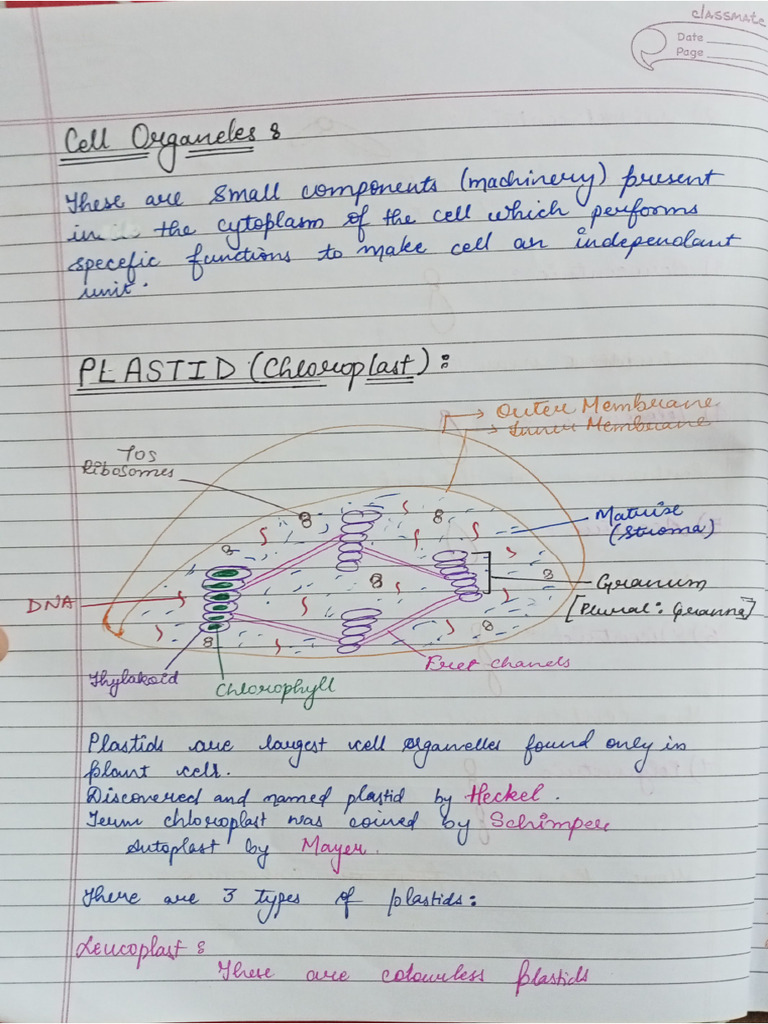 classmate
Date
Page
Cell Organeles :
These are small components (machinery) present
in the cytoplasm of the cell which performs
specefic functions to make cell an independant
unit.
PLASTID (Chloroplast) :
Outer Membrane
Inner Membrane
70s
Ribosomes
Matrix
(Stroma)
DNA
Granum
[Plural: Granna]
Thylakoid
Chlorophyll
Fret chanels
Plastids are largest cell organelles found only in
plant cell.
Discovered and named plastid by Heckel.
Term chloroplast was coined by Schimper
Autoplast by Mayer.
There are 3 types of plastids:
Leucoplast :
These are colourless plastids